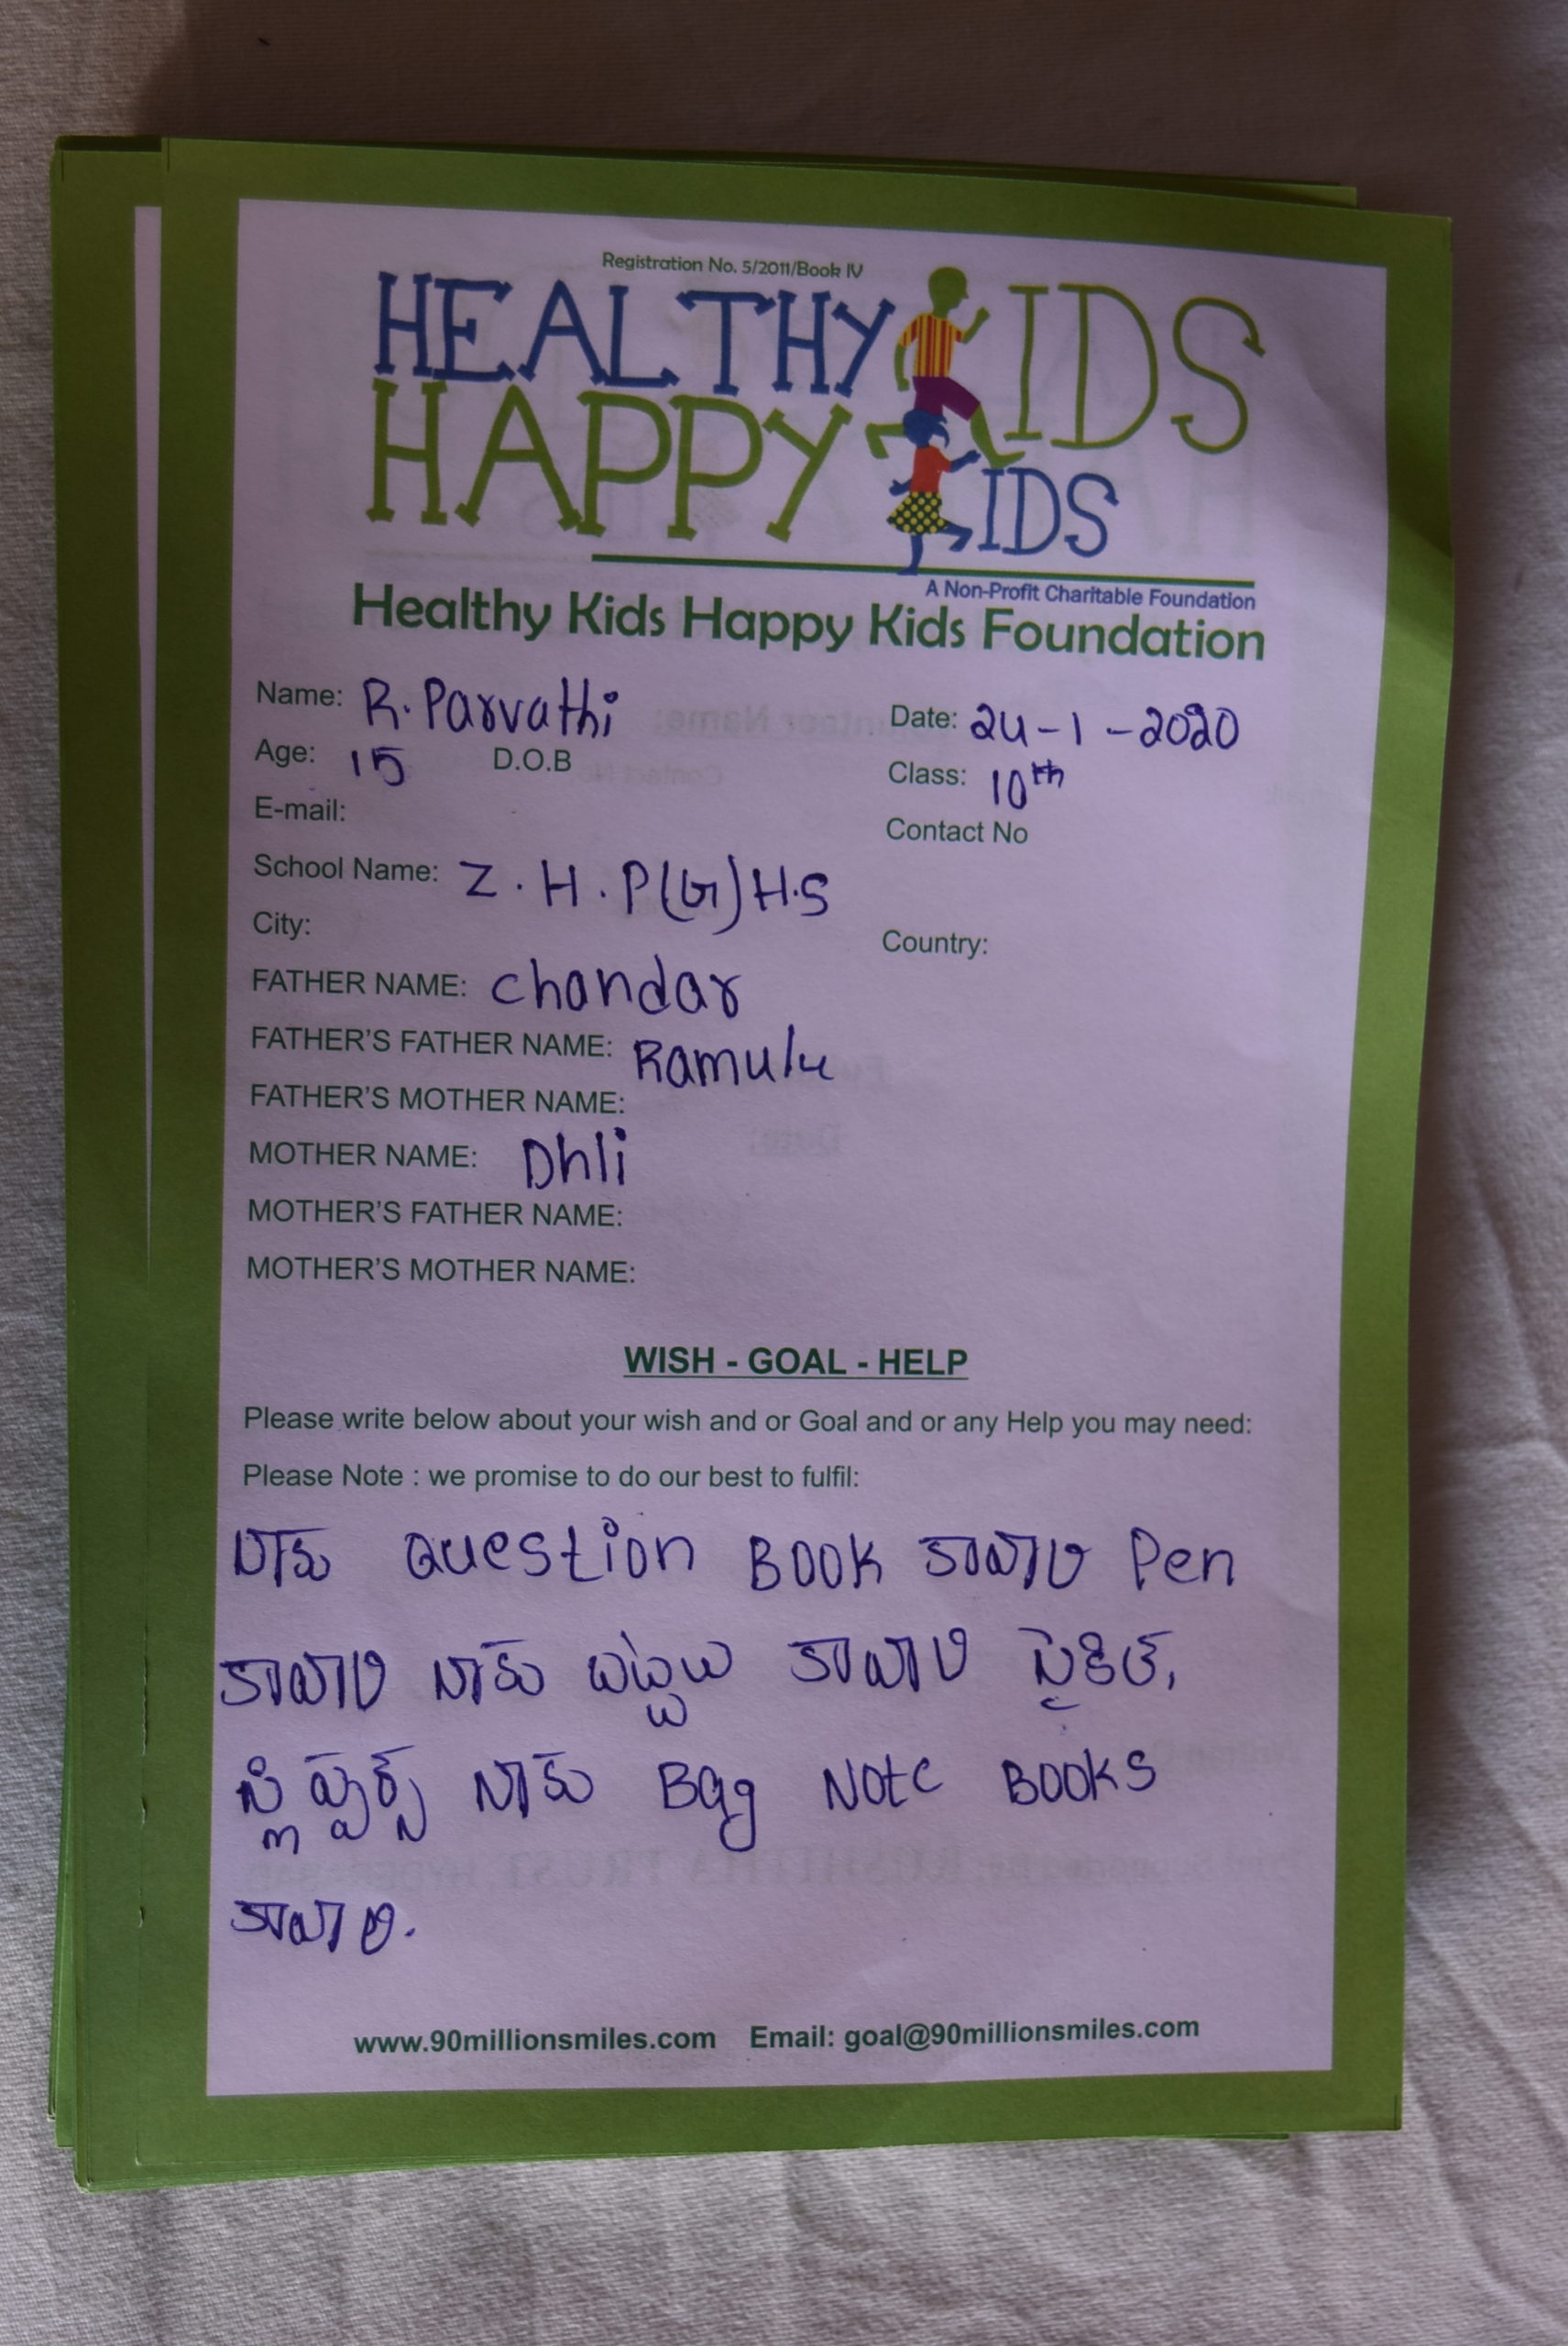 Registration No. 5/2011/Book IV
HEALTHY KIDS
HAPPY KIDS
A Non-Profit Charitable Foundation
Healthy Kids Happy Kids Foundation
Name: R. Parvathi Date: 24-1-2020
Age: 15 D.O.B Class: 10th
E-mail: Contact No
School Name: Z.H.P(G)H.S
City: Country:
FATHER NAME: chandar
FATHER'S FATHER NAME: Ramulu
FATHER'S MOTHER NAME:
MOTHER NAME: Dhli
MOTHER'S FATHER NAME:
MOTHER'S MOTHER NAME:
WISH - GOAL - HELP
Please write below about your wish and or Goal and or any Help you may need:
Please Note : we promise to do our best to fulfil:
నాకు Question Book కావాలి Pen
కావాలి నాకు కావాలి సైకిల్,
స్లిప్పర్స్ నాకు Bag Note Books
కావాలి.
www.90millionsmiles.com Email: goal@90millionsmiles.com